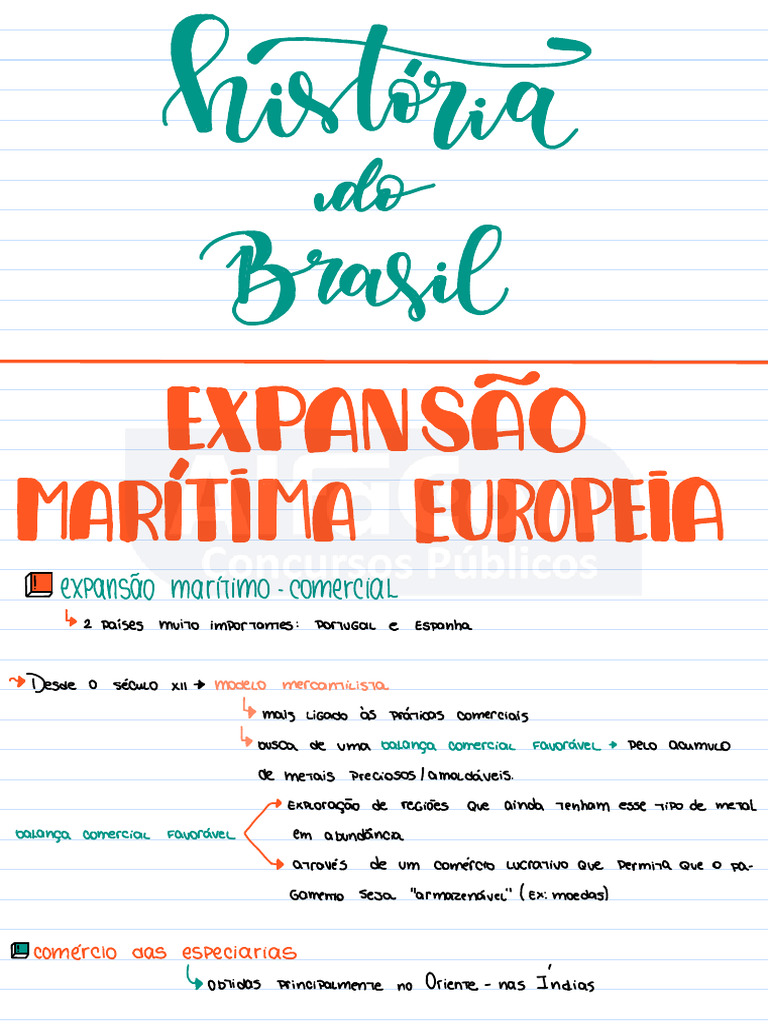 história
do
Brasil
EXPANSÃO
MARÍTIMA EUROPEIA
AlfaCon
Concursos Públicos
expansão marítimo-comercial
↳ 2 países muito importantes: Portugal e Espanha
Desde o século XII → modelo mercantilista
↳ mais ligado às práticas comerciais
↳ busca de uma balança comercial favorável → pelo acumulo
de metais preciosos/amoldáveis.
Exploração de regiões que ainda tenham esse tipo de metal
balança comercial favorável
em abundância
através de um comércio lucrativo que permita que o pa-
gamento seja "armazenável" (Ex: moedas)
comércio das especiarias
↳ obtidas principalmente no Oriente - nas Índias